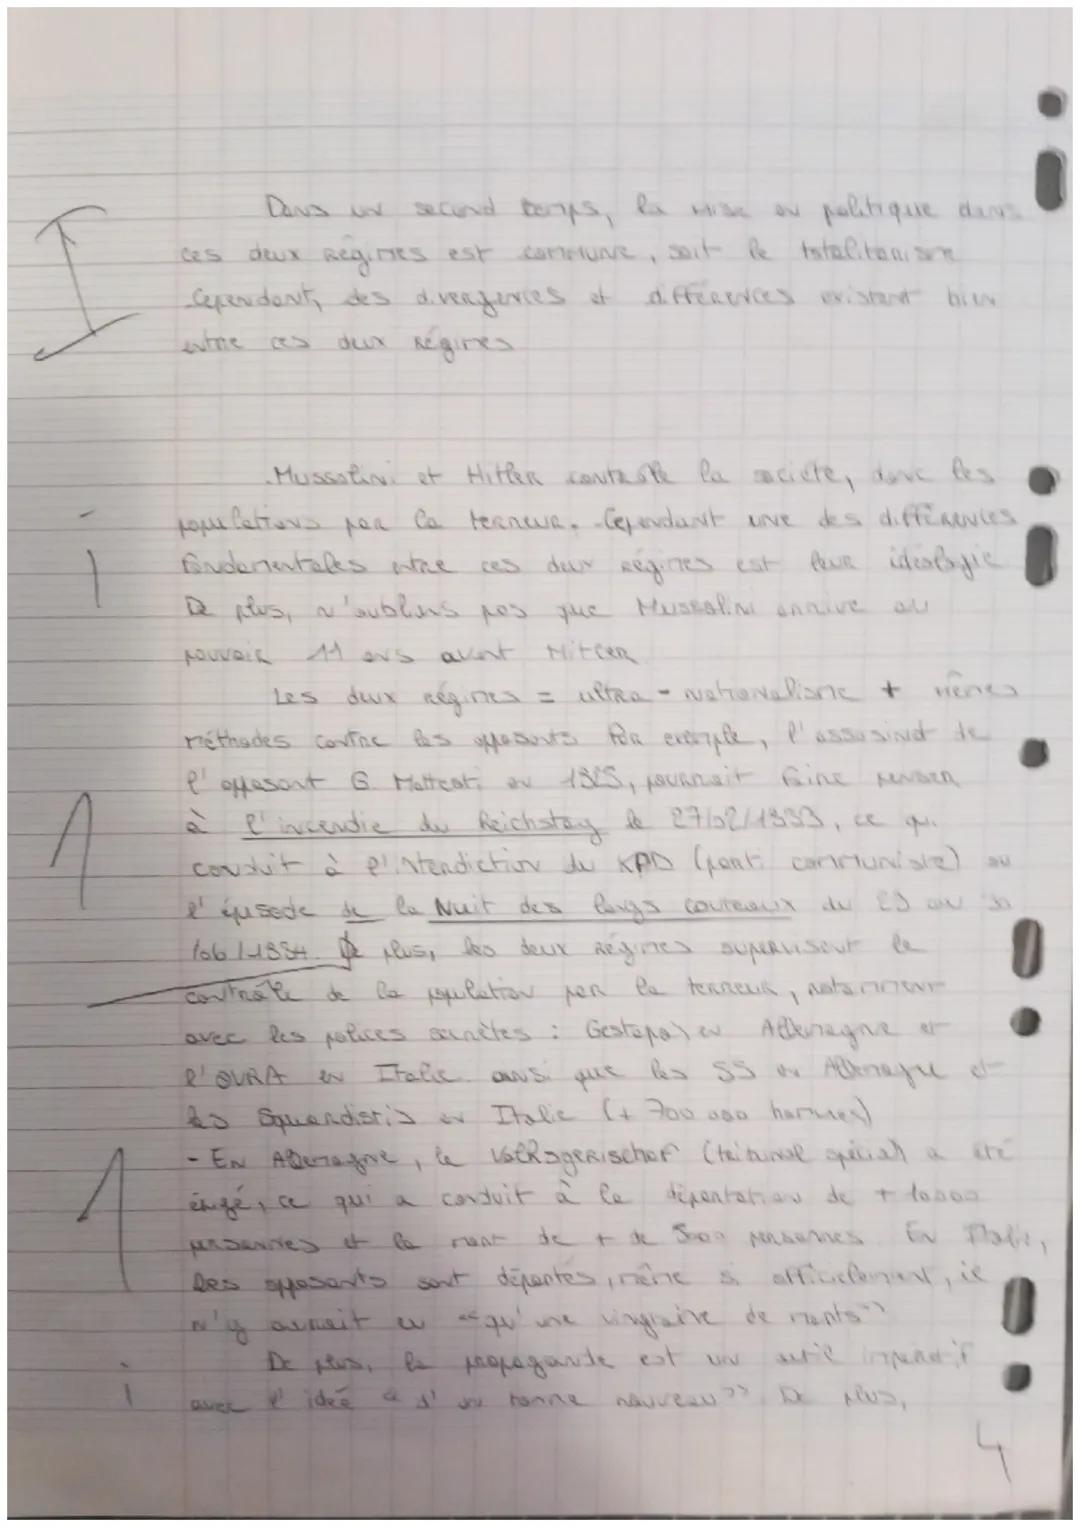 Dans un second temps, la mise en politique dans
ces deux régimes est commune, soit le totalitarisme
Cependant, des divergences et différences existent bien
entre ces deux régimes
Mussolini et Hitler contrôle la société, donc les
populations par la terreur. Cependant une des différences
fondamentales entre ces deux régimes est leur idéologie
De plus, n'oublons pas que Mussolini arrive au
pouvoir 11 ans avant Hitler
Les deux régimes = ultra-nationalisme + mêmes
méthodes contre les opposants Par exemple, l'assasinat de
l'opposant G. Matteoti en 1925, pourrait faire penser
à l'incendie du Reichstag le 27/02/1933, ce qui
conduit à l'interdiction du KPD (parti communiste) ou
l'épisode de la Nuit des longs couteaux du 29 au 30
/06/1934. De plus, les deux régimes supervisent le
contrôle de la population par la terreur, notamment
avec les polices secrètes : Gestapo, en Allemagne et
l'OVRA en Italie ainsi que les SS en Allemagne et
les Squardistis en Italie (+ 700 000 hommes)
- En Allemagne, le Volksgerischof (tribunal spécial) a été
érigé, ce qui a conduit à la déportation de + 10000
personnes et la mort de + de 5000 personnes En Italie,
Les opposants sont déportés, même si officielement, il
n'y aurait eu "qu'une vingtaine de morts"
De plus, la propagande est un outil imperatif
avec l'idée "d'un homme nouveau" De plus,
4
I
i
1
1
i